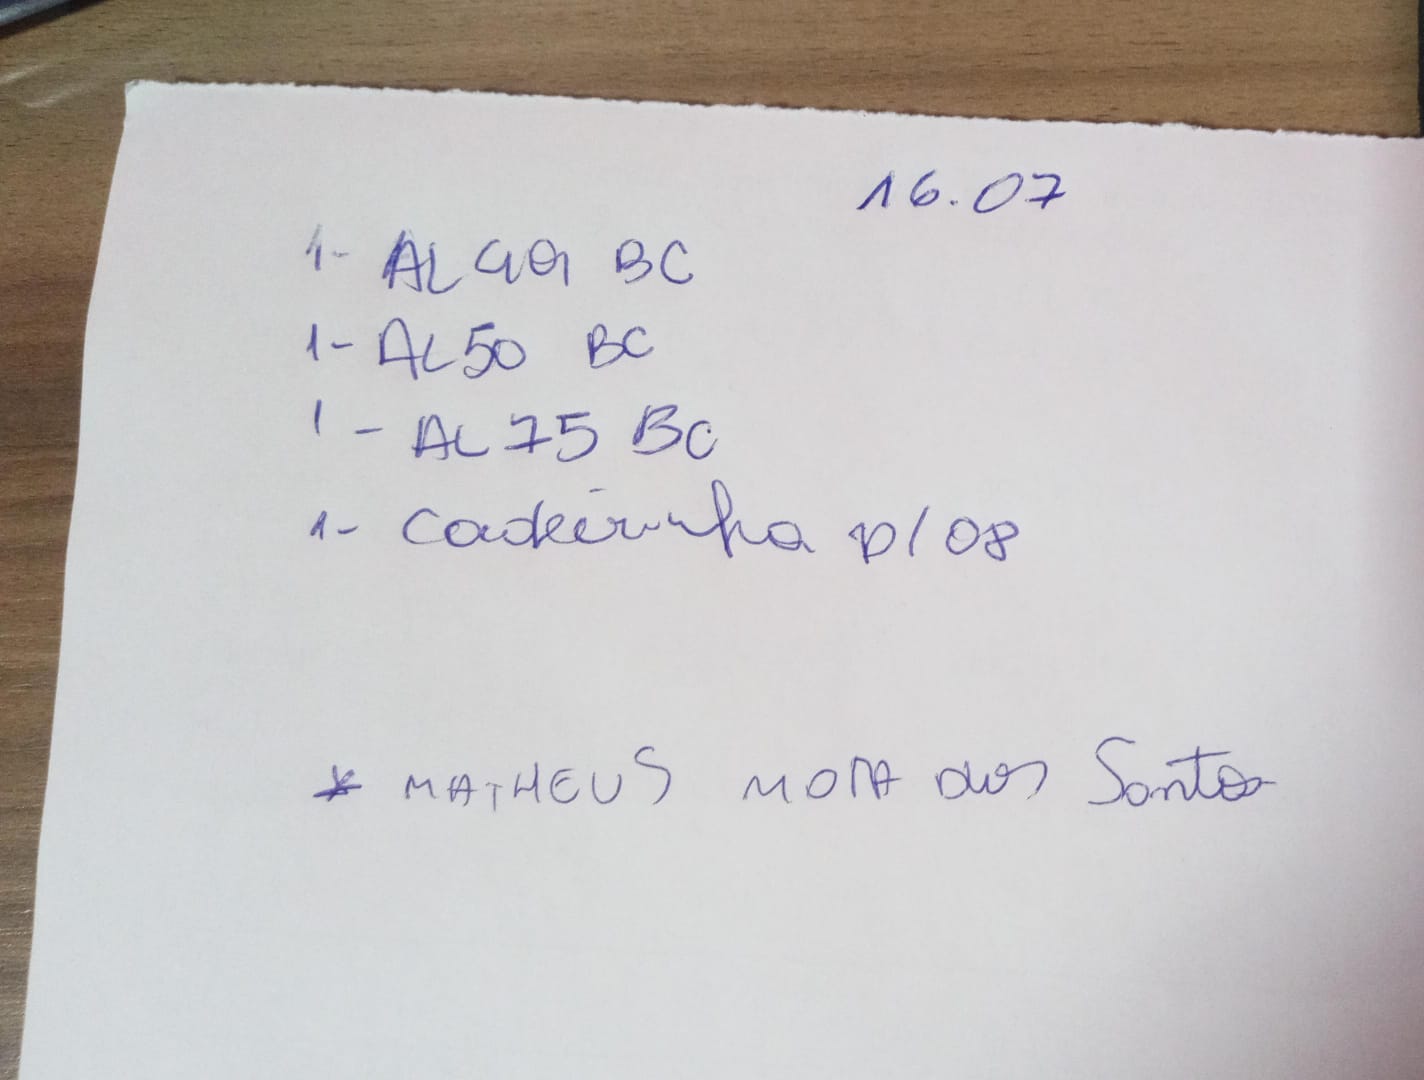 16.07
1- AL 49 BC
1- AL50 BC
1- AL 75 BC
1- Cadeirinha p/ 08
* MATHEUS MOTA dos Santos